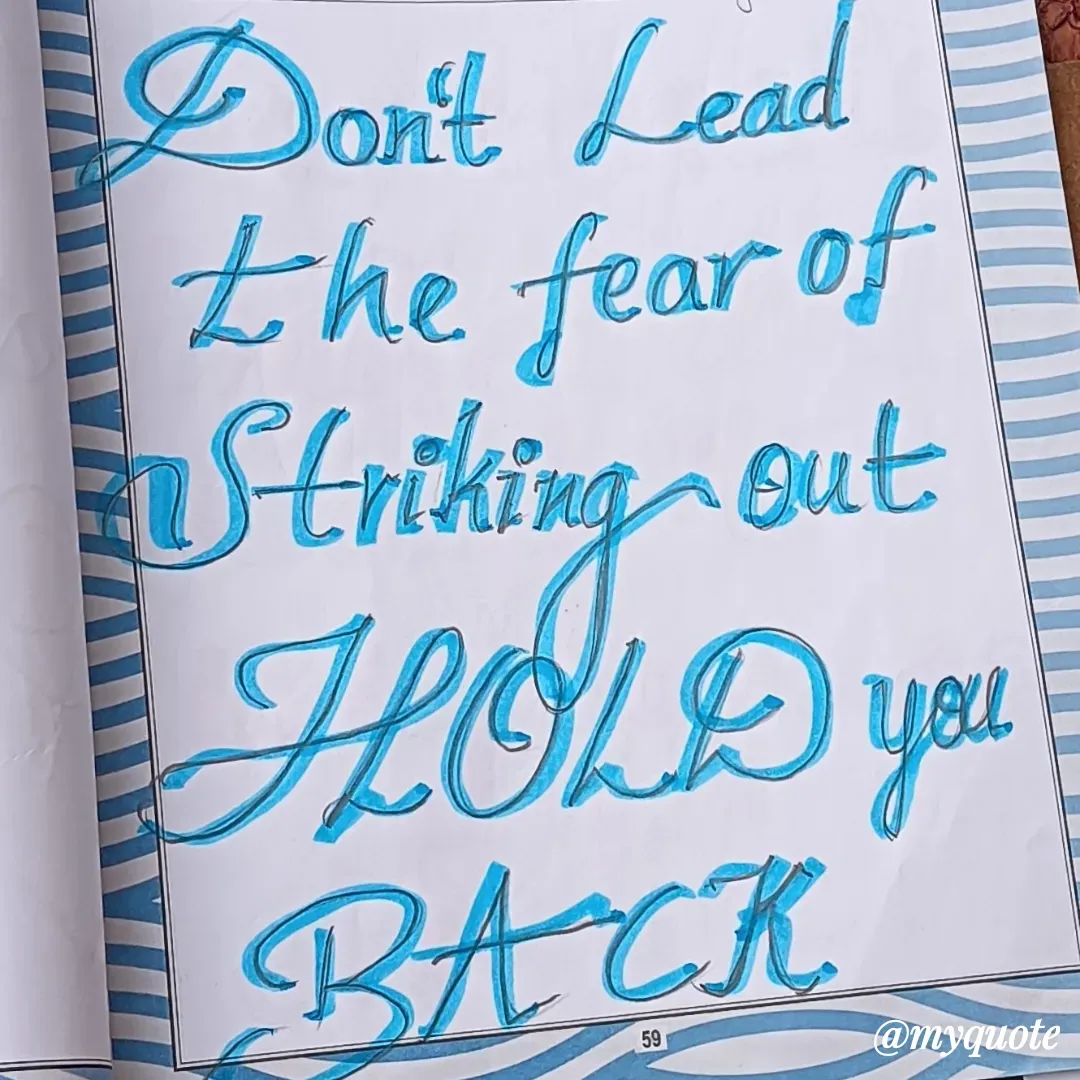 Don't Lead
the fear of
Striking out
HOLD you
BACK
59
@myquote